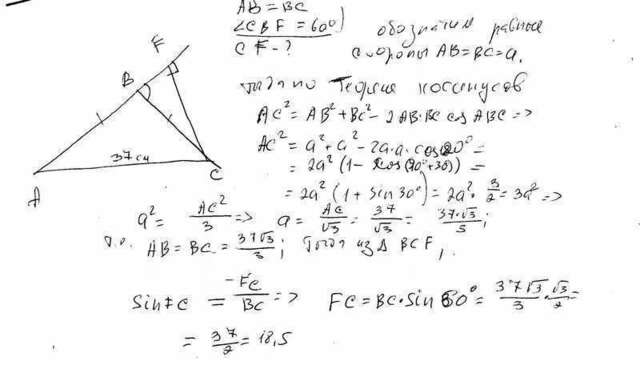 AB = BC
∠CBF = 60°)
CF - ?
обозначим равные
стороны AB = BC = a.
F
B
37 см
A
C
тогда по теореме косинусов
AC² = AB² + BC² - 2AB·BC cos ABC =>
AC² = a² + a² - 2a·a·cos120° =
= 2a² (1 - cos(90°+30)) =
= 2a² (1 + sin 30°) = 2a² · 3/2 = 3a² =>
a² = AC²/3 => a = AC/√3 = 37/√3 = 37·√3/3;
т.о. AB = BC = 37√3/3; Тогда из Δ BCF,
sin FC = FC/BC => FC = BC·sin 60° = 37√3/3 · √3/2 =
= 37/2 = 18,5